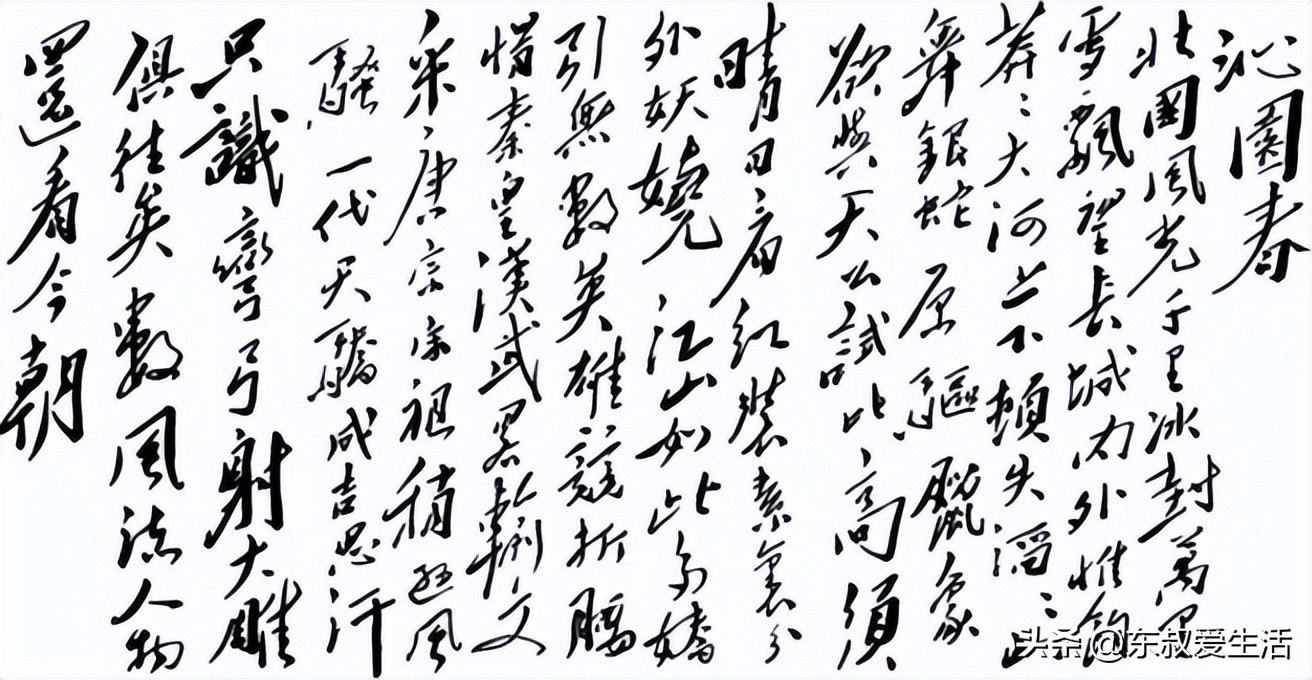 沁園春
北國風光千里冰封萬里
雪飄望長城内外惟餘
莽〻大河上下頓失滔〻山
舞銀蛇原驅臘象
欲與天公試比高須
晴日看紅裝素裹分
外妖嬈江山如此多嬌
引無數英雄競折腰
惜秦皇漢武略輸文
采唐宗宋祖稍遜風
騷一代天驕成吉思汗
只識彎弓射大雕
俱往矣數風流人物
還看今朝
头条@东叔爱生活